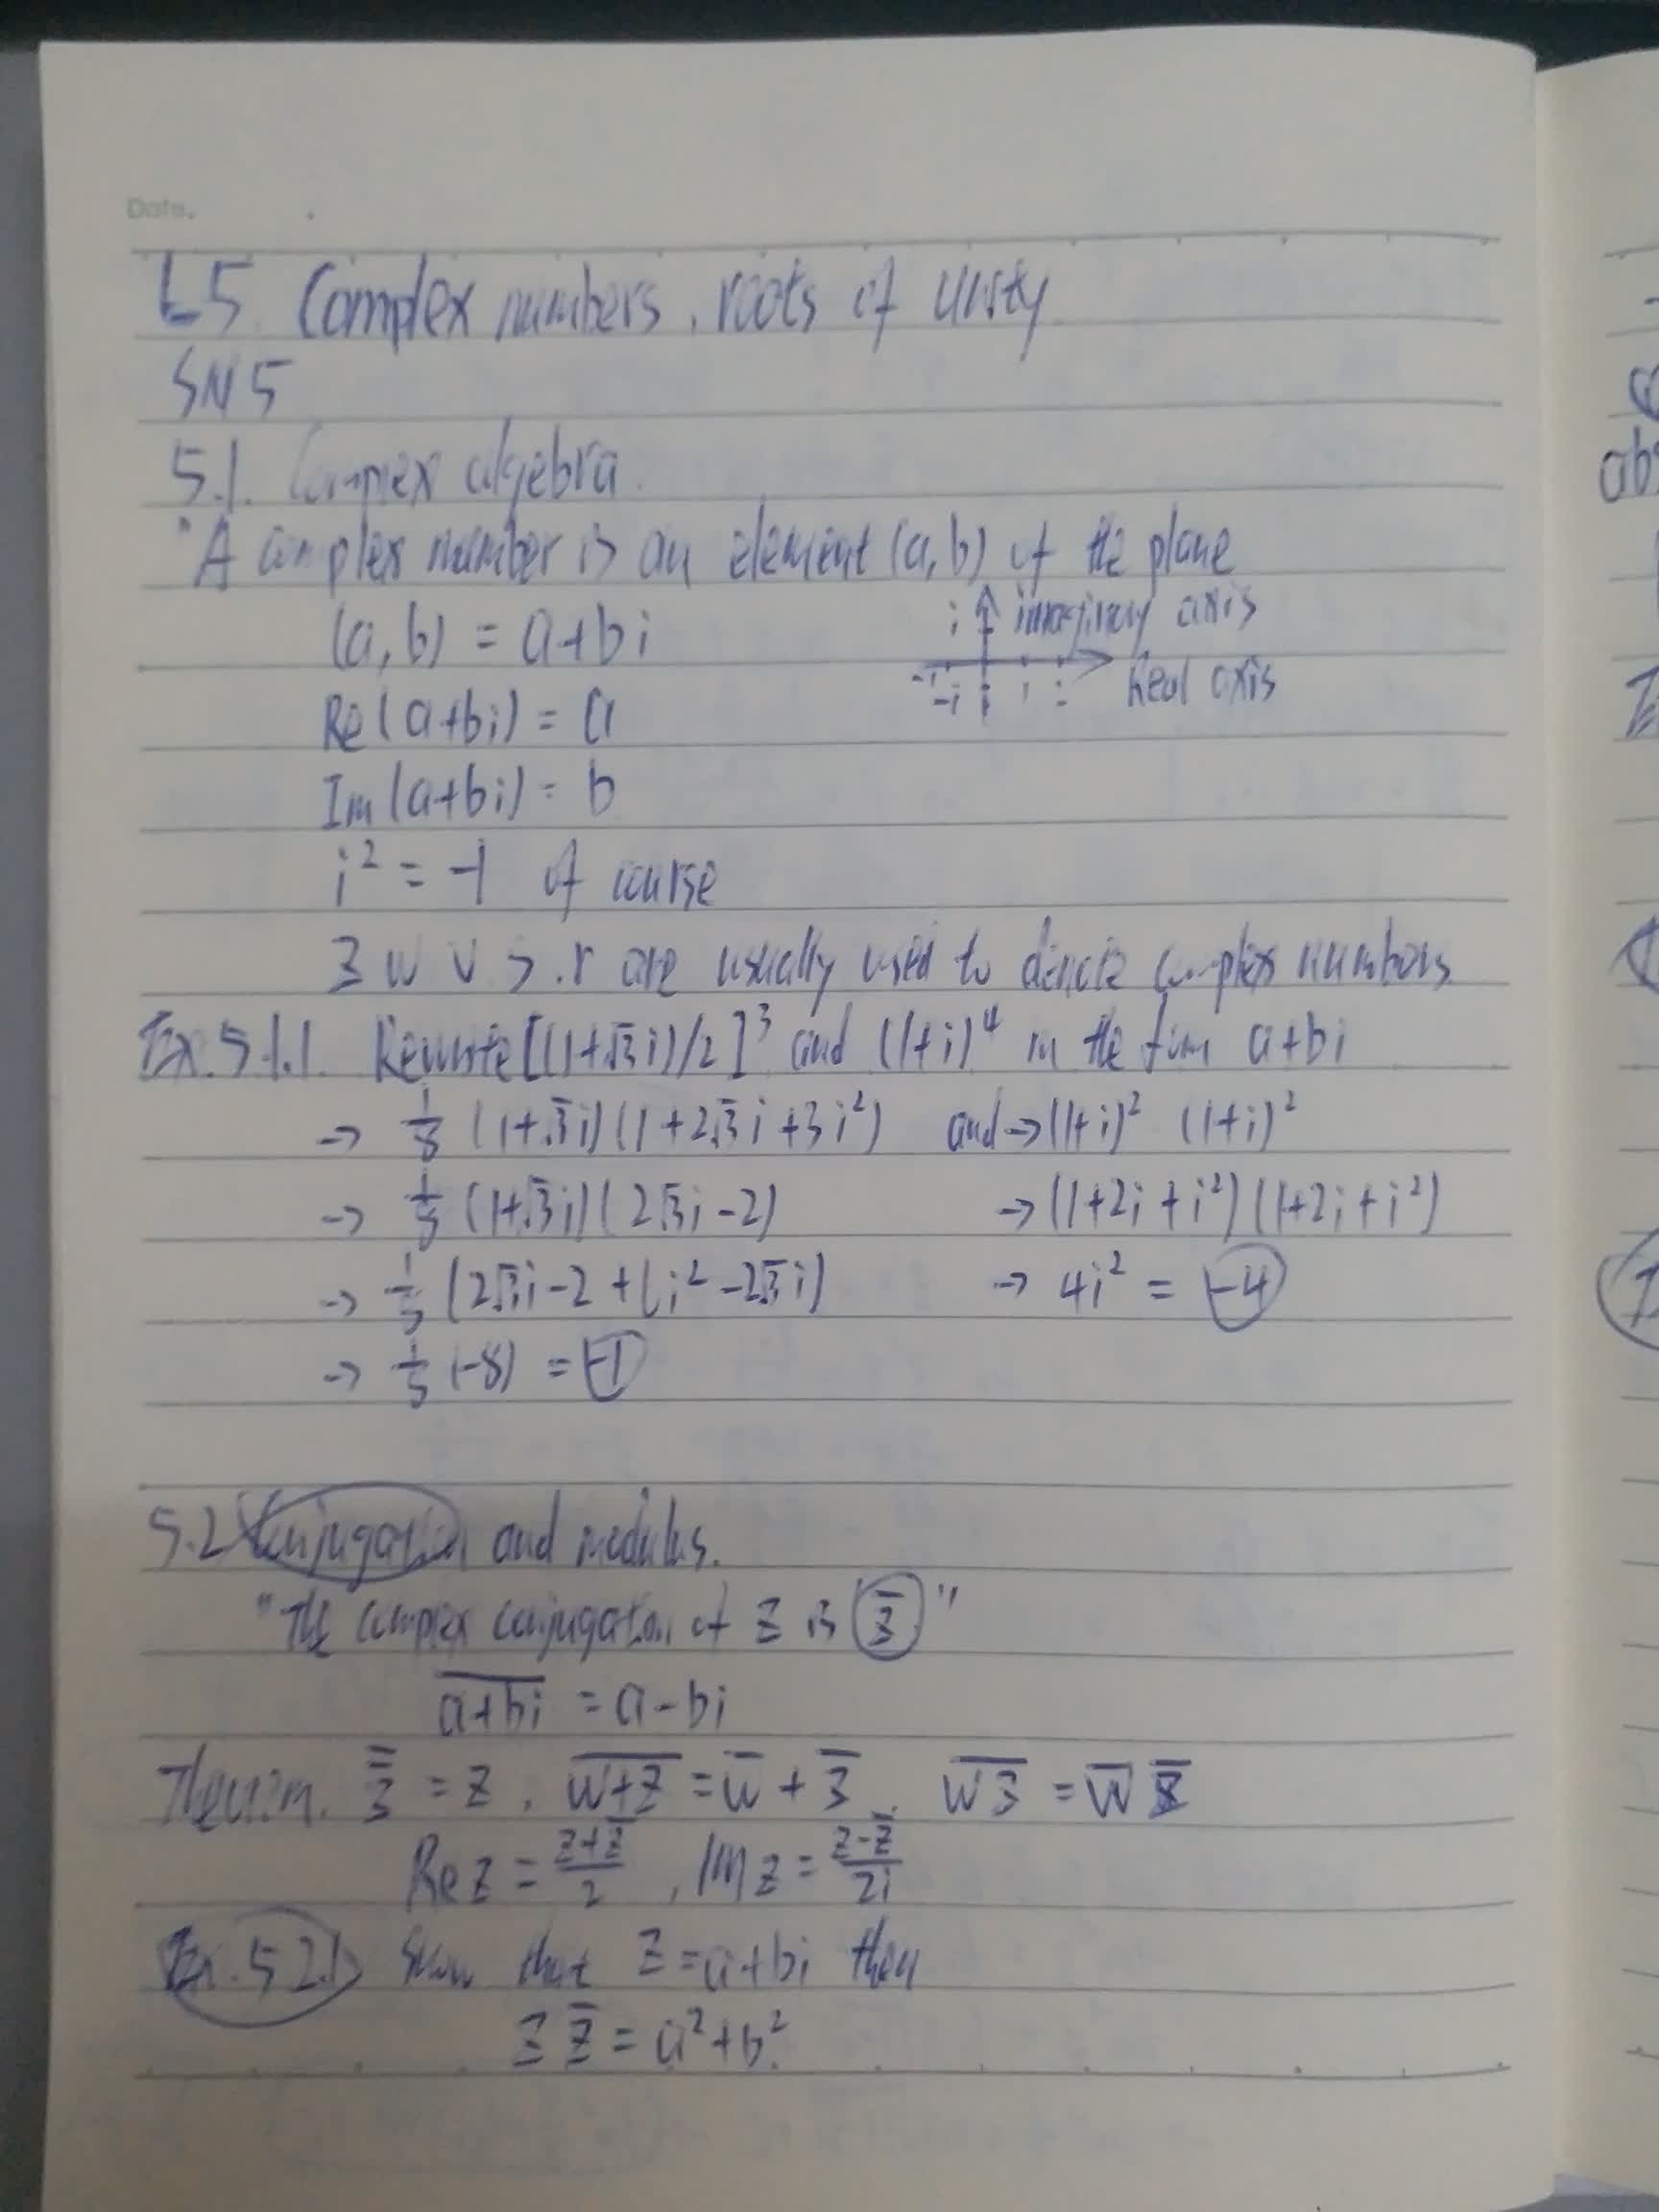 Date.
L5. Complex numbers, roots of unity
SN 5
5.1. Complex algebra.
"A complex number is an element (a, b) of the plane
(a, b) = a+bi
i imaginary axis
Real axis
-1 -i 1
Re(a+bi) = a
Im(a+bi) = b
i² = -1 of course
z w v s . r are usually used to denote complex numbers
Ex. 5.1.1. Rewrite [(1+√3i)/2]³ and (1+i)⁴ in the form a+bi
→ 1/8 (1+√3i)(1+2√3i+3i²) and → (1+i)² (1+i)²
→ 1/8 (1+√3i)(2√3i-2) → (1+2i+i²)(1+2i+i²)
→ 1/8 (2√3i-2+6i²-2√3i) → 4i² = -4
→ 1/8 (-8) = -1
5.2 Conjugation and modulus.
"The complex conjugation of z is z̅"
a+bi̅ = a-bi
Theorem. z̿ = z, w+z̅ = w̅ + z̅, wz̅ = w̅ z̅
Re z = (z+z̅)/2, Im z = (z-z̅)/2i
Ex. 5.2.1 Show that z = a+bi then
z z̅ = a²+b².